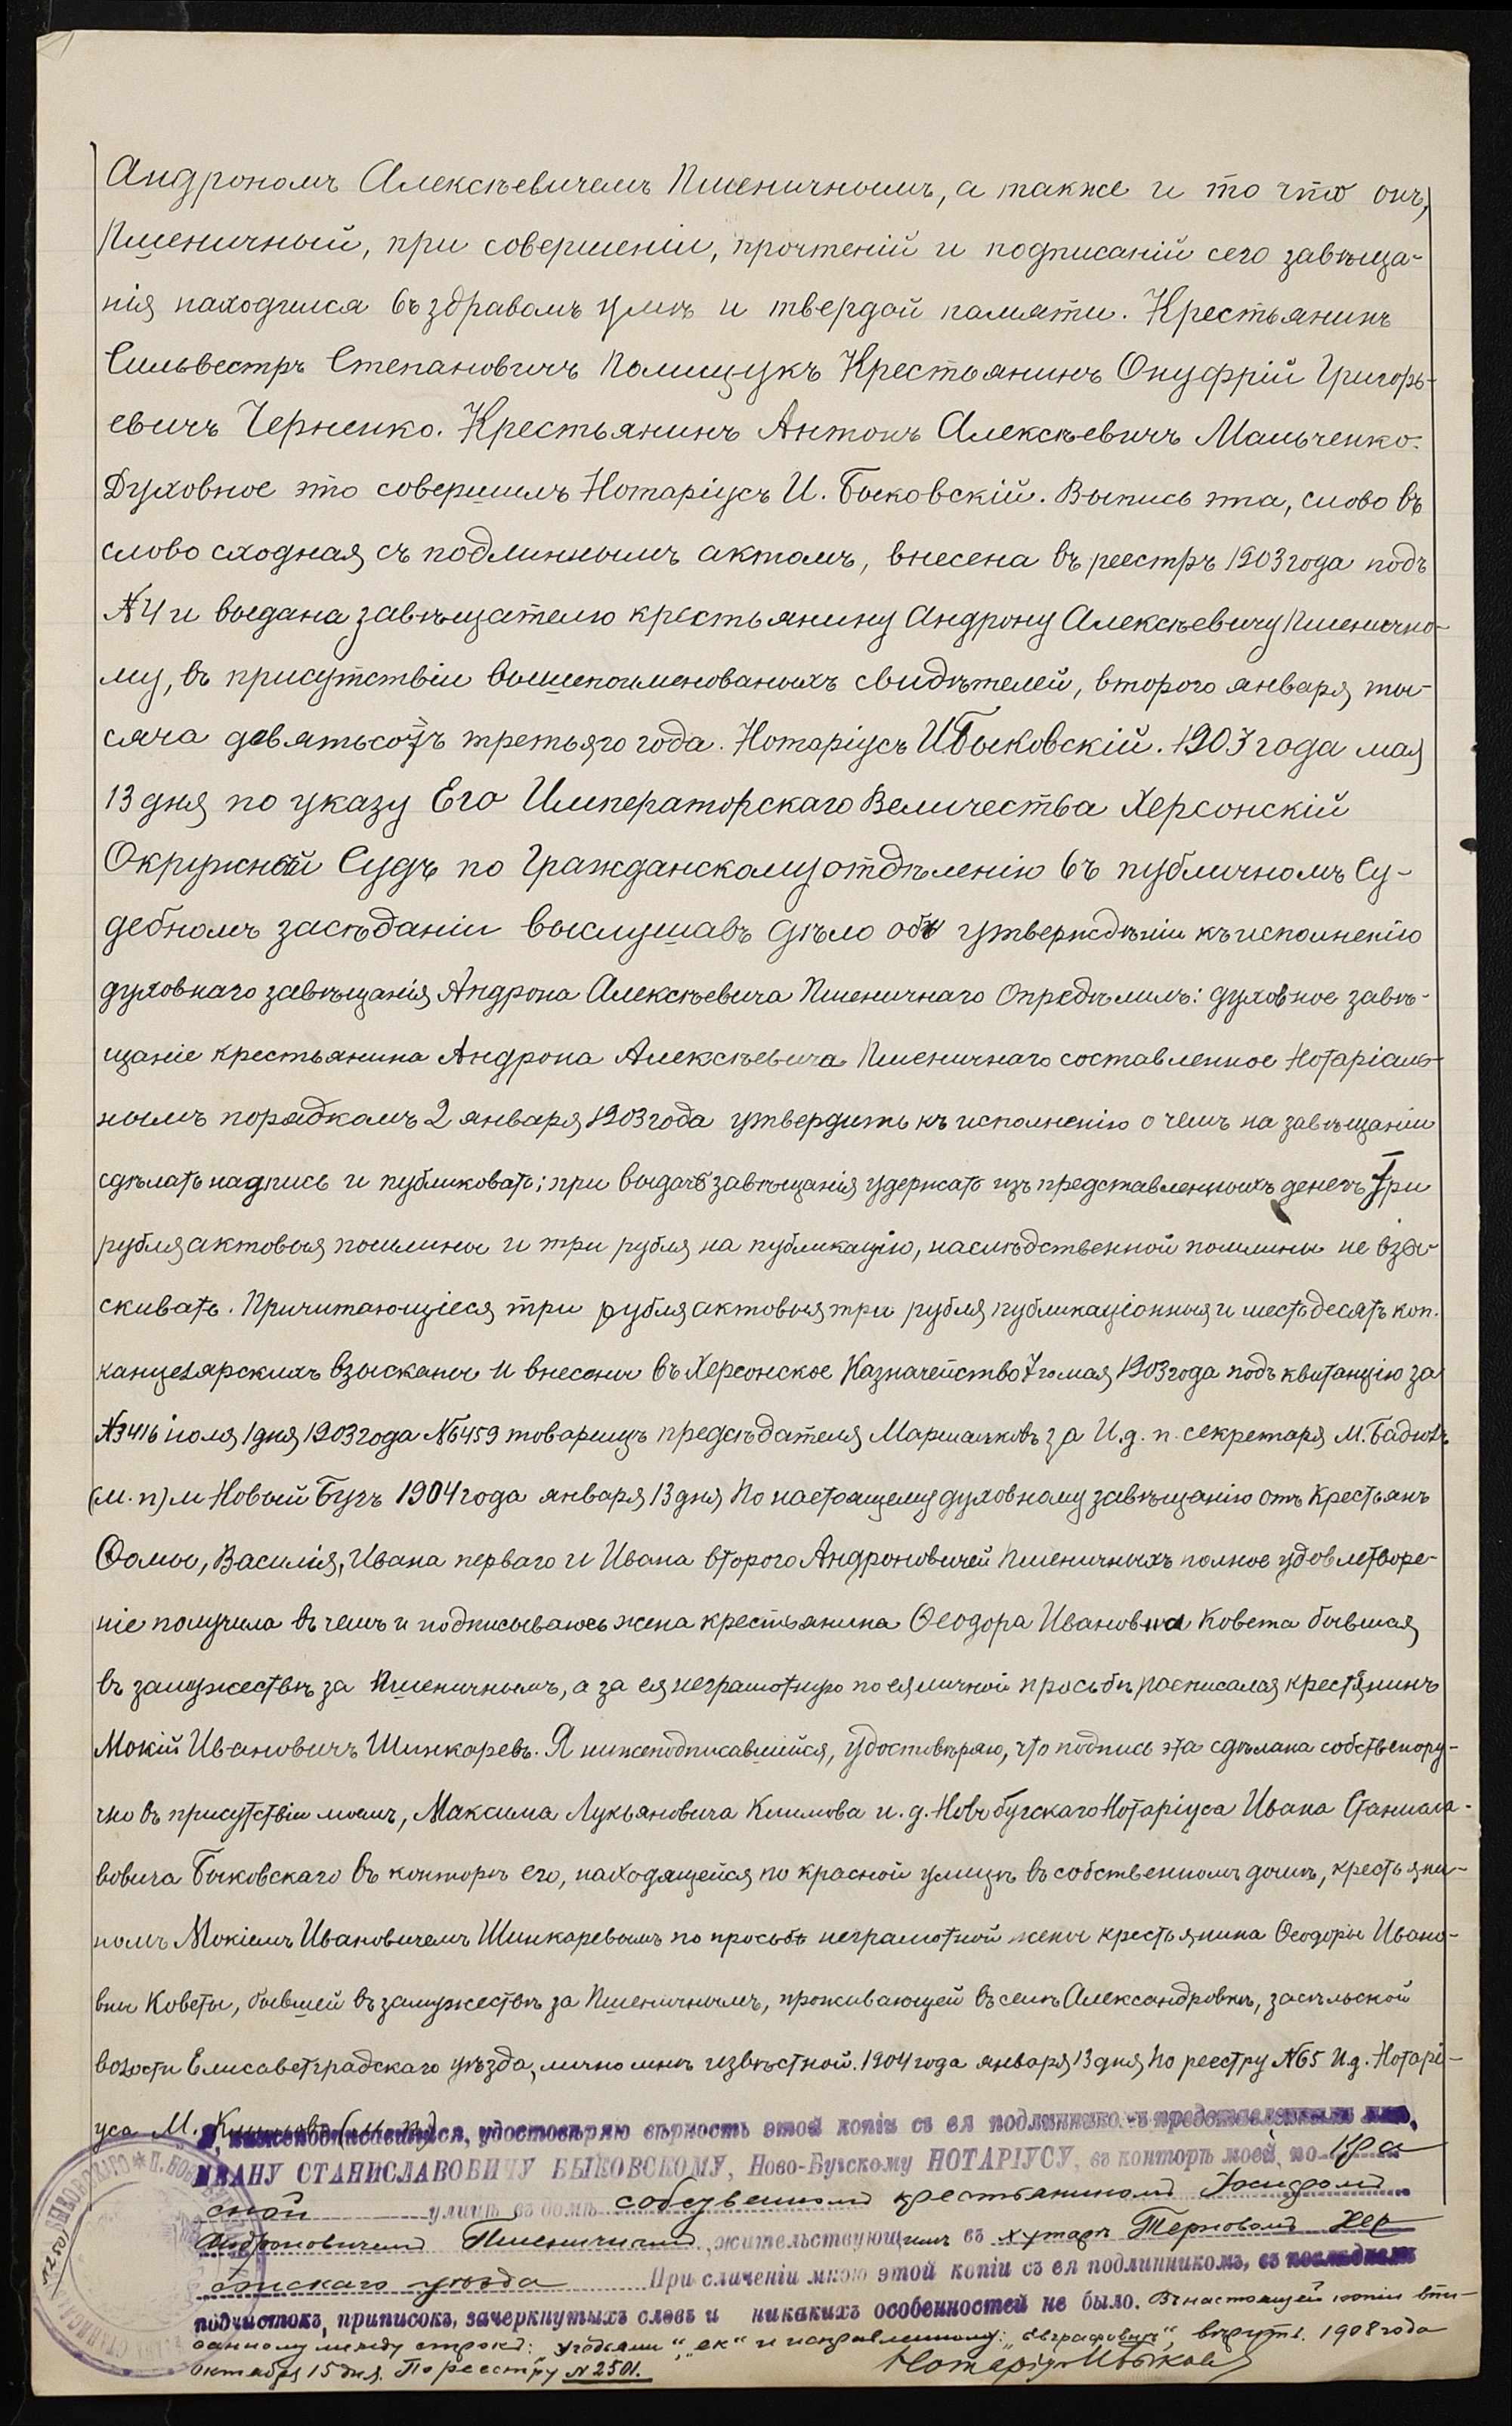 Андрономъ Алексѣевичемъ Пшеничнымъ, а также и то что онъ,
Пшеничный, при совершеніи, прочтеній и подписаній сего завѣща-
нія находился въ здравомъ умѣ и твердой памяти. Крестьянинъ
Сильвестръ Степановичъ Полищукъ Крестьянинъ Онуфрій Григорь-
евичъ Черненко. Крестьянинъ Антонъ Алексѣевичъ Мальченко.
Духовное это совершилъ Нотаріусъ И. Быковскій. Выпись эта, слово въ
слово сходная съ подлиннымъ актомъ, внесена въ реестръ 1903 года подъ
№ 4 и выдана завѣщателю крестьянину Андрону Алексѣевичу Пшенично-
му, въ присутствіи вышепоименованыхъ свидѣтелей, второго января ты-
сяча девятьсотъ третьяго года. Нотаріусъ И Быковскій. 1903 года мая
13 дня по указу Его Императорскаго Величества Херсонскій
Окружной Судъ по Гражданскому отдѣленію въ публичномъ Су-
дебномъ засѣданіи выслушавъ дѣло объ утвержденіи къ исполненію
духовнаго завѣщанія Андрона Алексѣевича Пшеничнаго Опредѣлилъ: духовное завѣ-
щаніе крестьянина Андрона Алексѣевича Пшеничнаго составленное Нотаріаль-
нымъ порядкомъ 2 января 1903 года утвердить къ исполненію о чемъ на завѣщаніи
сдѣлать надпись и публиковать; при выдачѣ завѣщанія удержать изъ представленныхъ денегъ Три
рубля актовыя пошлины и три рубля на публикацію, наслѣдственной пошлины не взы-
скивать. Причитающіеся три рубля актовыя три рубля публикаціонныя и шестьдесятъ коп.
канцелярскихъ взысканы и внесены въ Херсонское Казначейство 7го мая 1903 года подъ квитанцію за
№ 3416 іюля 1 дня 1903 года № 6459 товарищъ предсѣдателя Маршалковъ за И.д. п. секретаря М.
(м. п) м Новый Бугъ 1904 года января 13 дня По настоящему духовному завѣщанію отъ крестьянъ
Ѳомы, Василія, Ивана перваго и Ивана второго Андроновичей Пшеничныхъ полное удовлетворе-
ніе получила въ чемъ и подписываюсь жена крестьянина Ѳеодора Ивановна Ковета бывшая
въ замужествѣ за Пшеничнымъ, а за ея неграмотную по ея личной просьбѣ росписался крестянинъ
Мокій Ивановичъ Шинкаревъ. Я нижеподписавшийся, удостовѣряю, что подпись эта сдѣлана собственору-
чно въ присутствіи моемъ, Максима Лукьяновича Климова и. д. Новобугскаго Нотаріуса Ивана Станисла-
вовича Быковскаго въ конторѣ его, находящейся по красной улицѣ въ собственномъ домѣ, крестьяни-
номъ Мокіемъ Ивановичемъ Шинкаревымъ по просьбѣ неграмотной жены крестьянина Ѳеодоры Ивано-
вны Коветы, бывшей въ замужествѣ за Пшеничнымъ, проживающей въ селѣ Александровкѣ, засѣльской
волости Елисаветградскаго уѣзда, лично мнѣ извѣстной. 1904 года января 13 дня По реестру № 65 И.д. Нотарі-
уса М. Климовъ (м. п.)
Я, нижеподписавшійся, удостовѣряю вѣрность этой копіи съ ея подлинникомъ представленнымъ мнѣ,
ИВАНУ СТАНИСЛАВОВИЧУ БЫКОВСКОМУ, Ново-Бугскому НОТАРІУСУ, въ конторѣ моей, по Кра
сной улицѣ въ домѣ собственномъ крестьяниномъ
Андроновичемъ Пшеничнымъ, жительствующимъ въ хуторѣ Терновомъ Хер
сонскаго уѣзда При сличеніи мною этой копіи съ ея подлинникомъ, въ послѣднемъ
подчистокъ, приписокъ, зачеркнутыхъ словъ и никакихъ особенностей не было. Въ настоящей копіи впи-
санному между строкъ: "ек" и исправленному: вѣрить. 1908 года
октября 15 дня. По реестру № 2501. Нотаріусъ И Быковскій